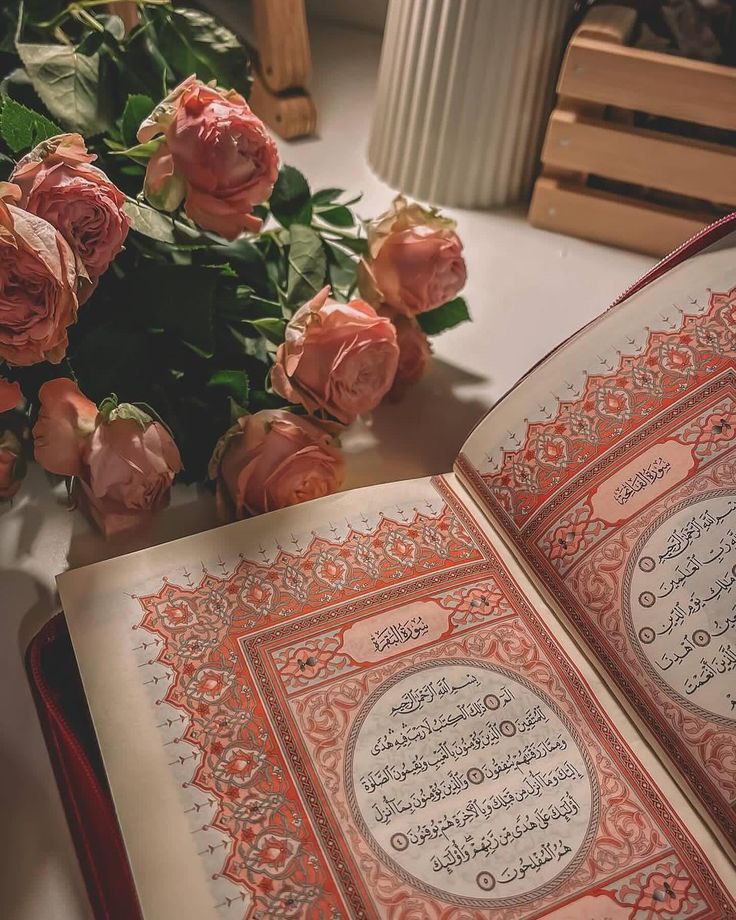 سُورَةُ الفَاتِحَة
بِسْمِ اللَّهِ الرَّحْمَٰنِ الرَّحِيمِ ١
رَبِّ الْعَٰلَمِينَ ٢
ٱلرَّحِيمِ ٣ مَٰلِكِ يَوْمِ الدِّينِ
نَعْبُدُ ٥
اهْدِنَا
الَّذِينَ أَنْعَمْتَ
سُورَةُ البَقَرَة
بِسْمِ اللَّهِ الرَّحْمَٰنِ الرَّحِيمِ
الٓمٓ ١ ذَٰلِكَ الْكِتَٰبُ لَا رَيْبَ فِيهِ هُدًى
لِّلْمُتَّقِينَ ٢ الَّذِينَ يُؤْمِنُونَ بِالْغَيْبِ وَيُقِيمُونَ الصَّلَوٰةَ
وَمِمَّا رَزَقْنَٰهُمْ يُنفِقُونَ ٣ وَالَّذِينَ يُؤْمِنُونَ بِمَا أُنزِلَ
إِلَيْكَ وَمَا أُنزِلَ مِن قَبْلِكَ وَبِالْءَاخِرَةِ هُمْ يُوقِنُونَ ٤
أُولَٰئِكَ عَلَىٰ هُدًى مِّن رَّبِّهِمْ ۖ وَأُولَٰئِكَ
هُمُ الْمُفْلِحُونَ ٥